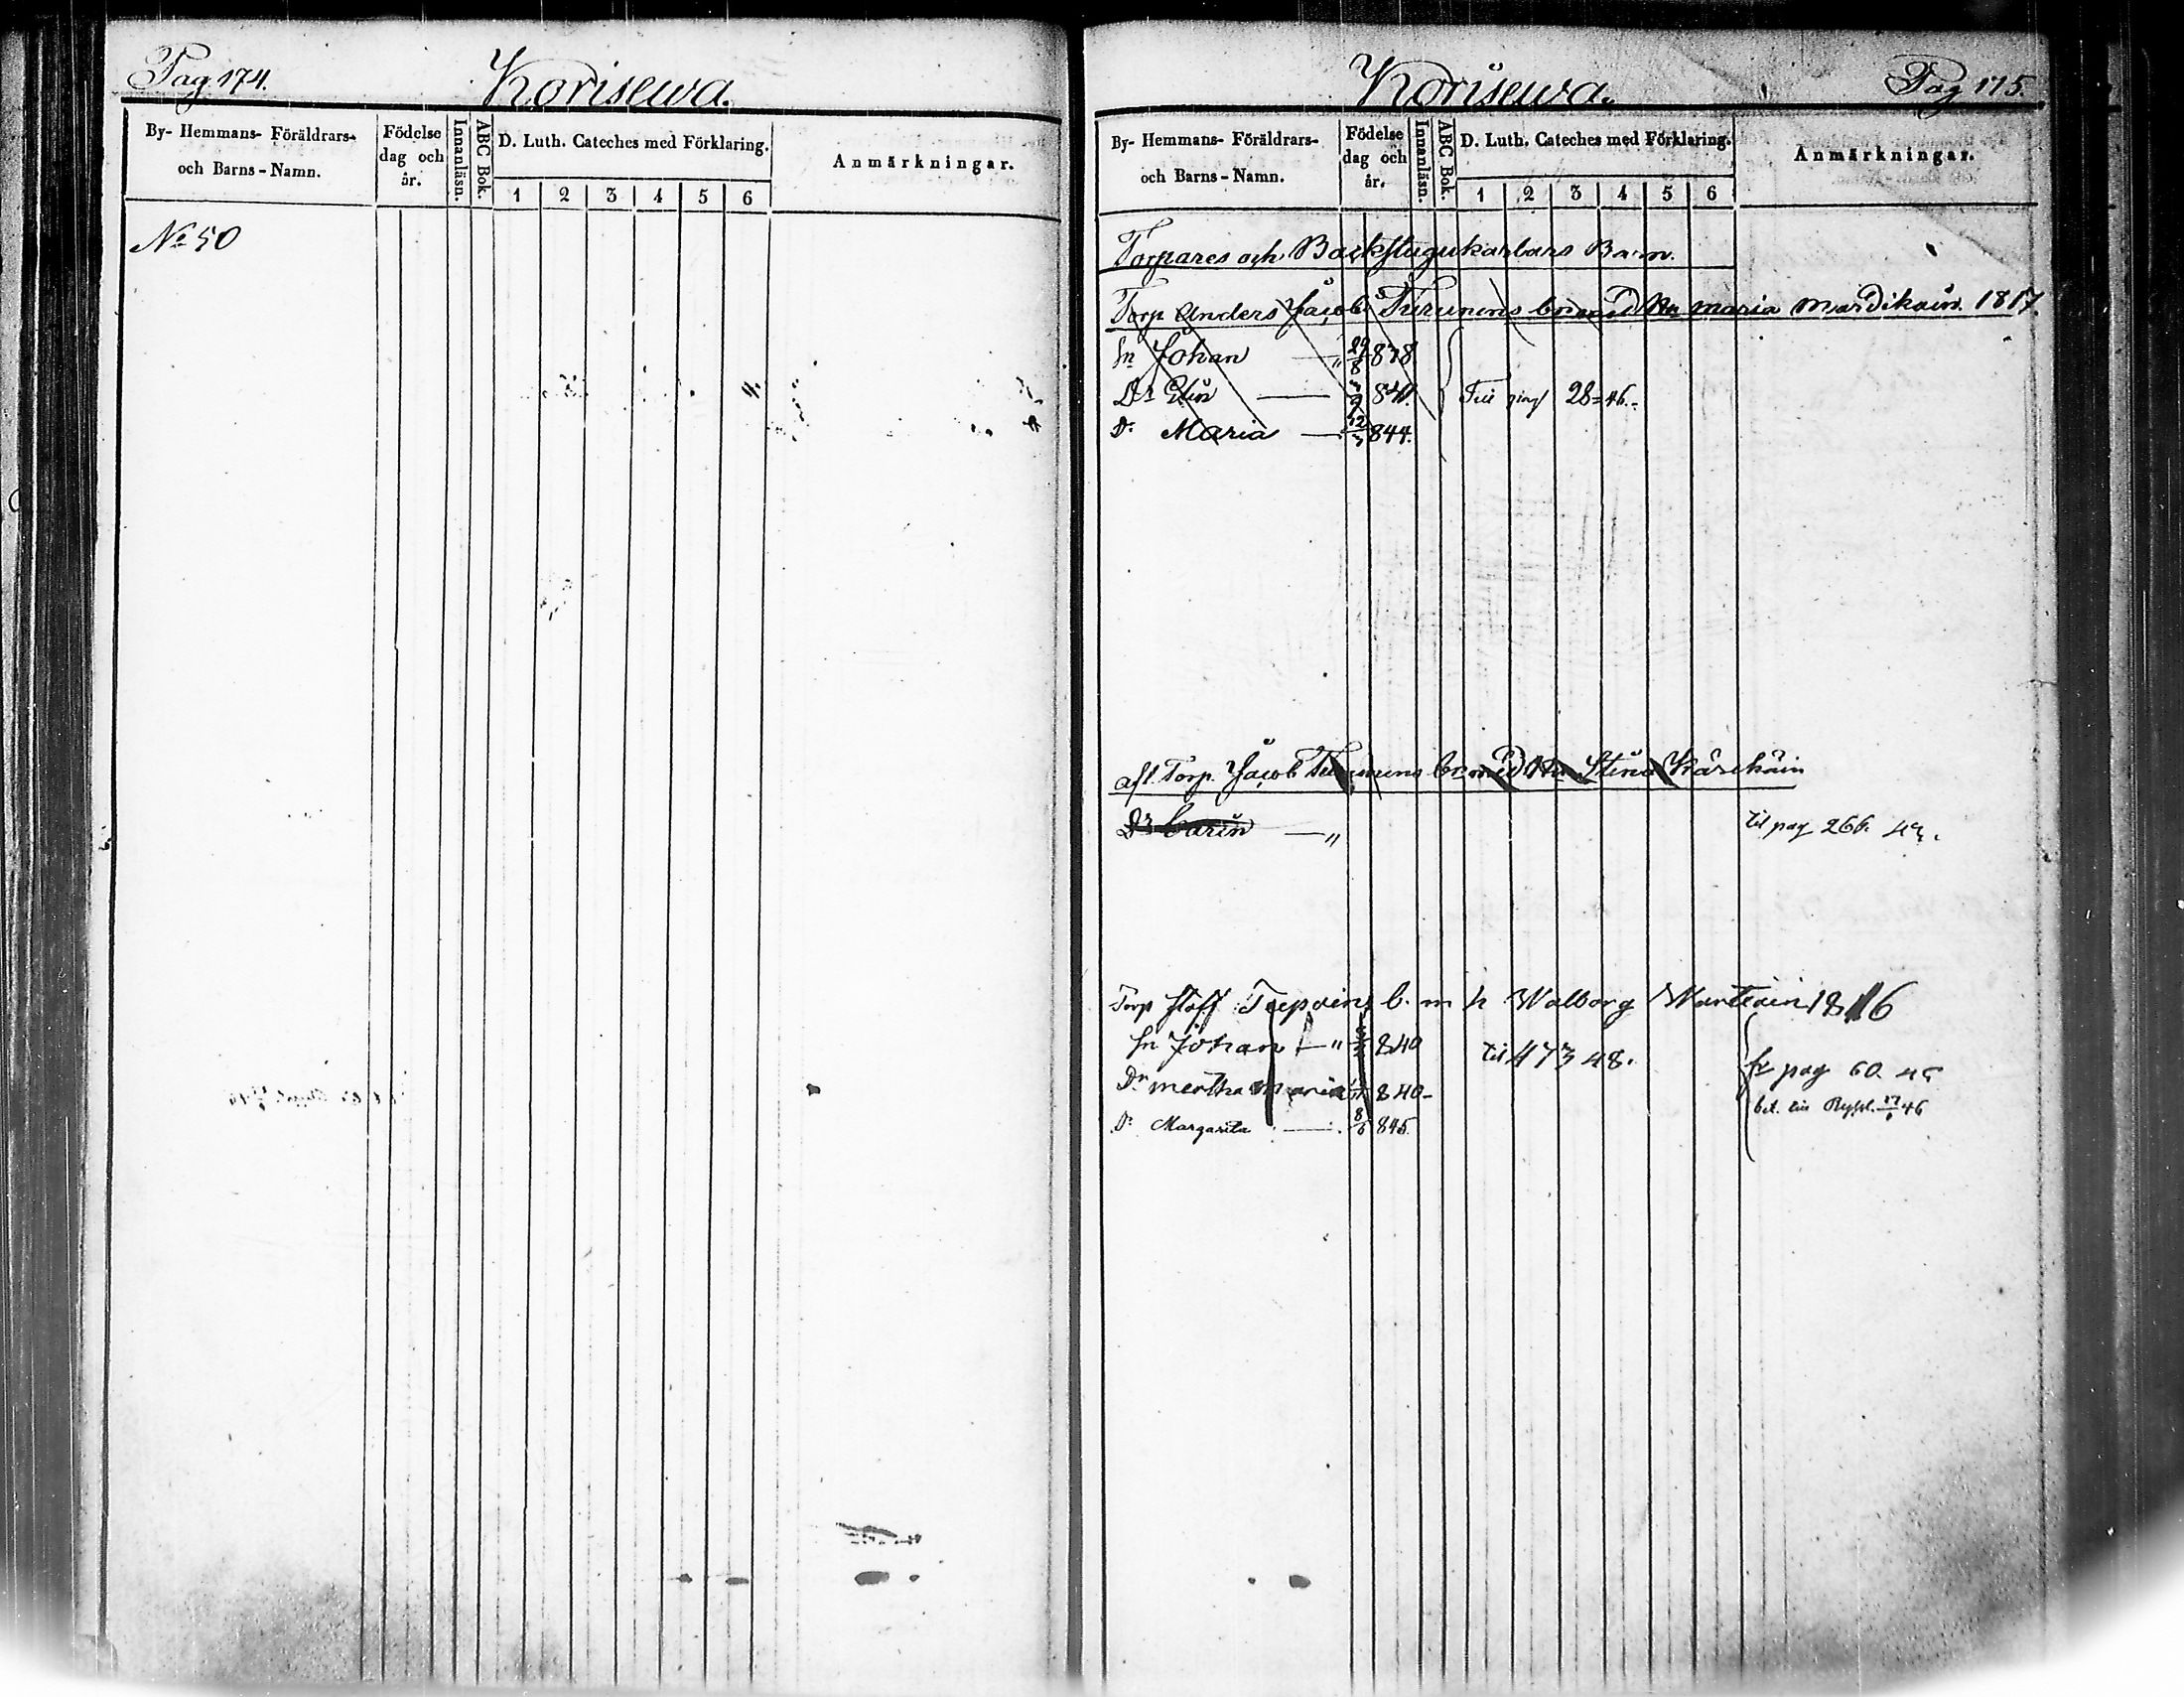 Pag 174.
Korisewa.
By- Hemmans- Föräldrars-
och Barns-Namn.
Födelse
dag och
år.
Innanläsn.
ABC Bok.
D. Luth. Cateches med Förklaring.
1 2 3 4 5 6
Anmärkningar.
No 50
Korisewa.
Pag 175.
By- Hemmans- Föräldrars-
och Barns-Namn.
Födelse
dag och
år.
Innanläsn.
ABC Bok.
D. Luth. Cateches med Förklaring.
1 2 3 4 5 6
Anmärkningar.
Torpares och Backstugukarlars Barn.
Torp Anders Jacobs Turunens br med Hu Maria Mardikain. 1817.
Sn Johan — " 29/8 838
Dr Elin — 840.
Dr Maria — 12/3 844.
28=46.
afl. Torp. Jacob Turunens br med Hu Stina Kärehäin
Dr Carin — "
til pag 266. 43.
Torp Staff. Torpain b. m h Walborg Wartiain 1816
Sn Johan — " 840
til 473 48.
Dr Mertha Maria 840-
fr pag 60. 45
Dr Margareta — 8/6 845.
17/1 46